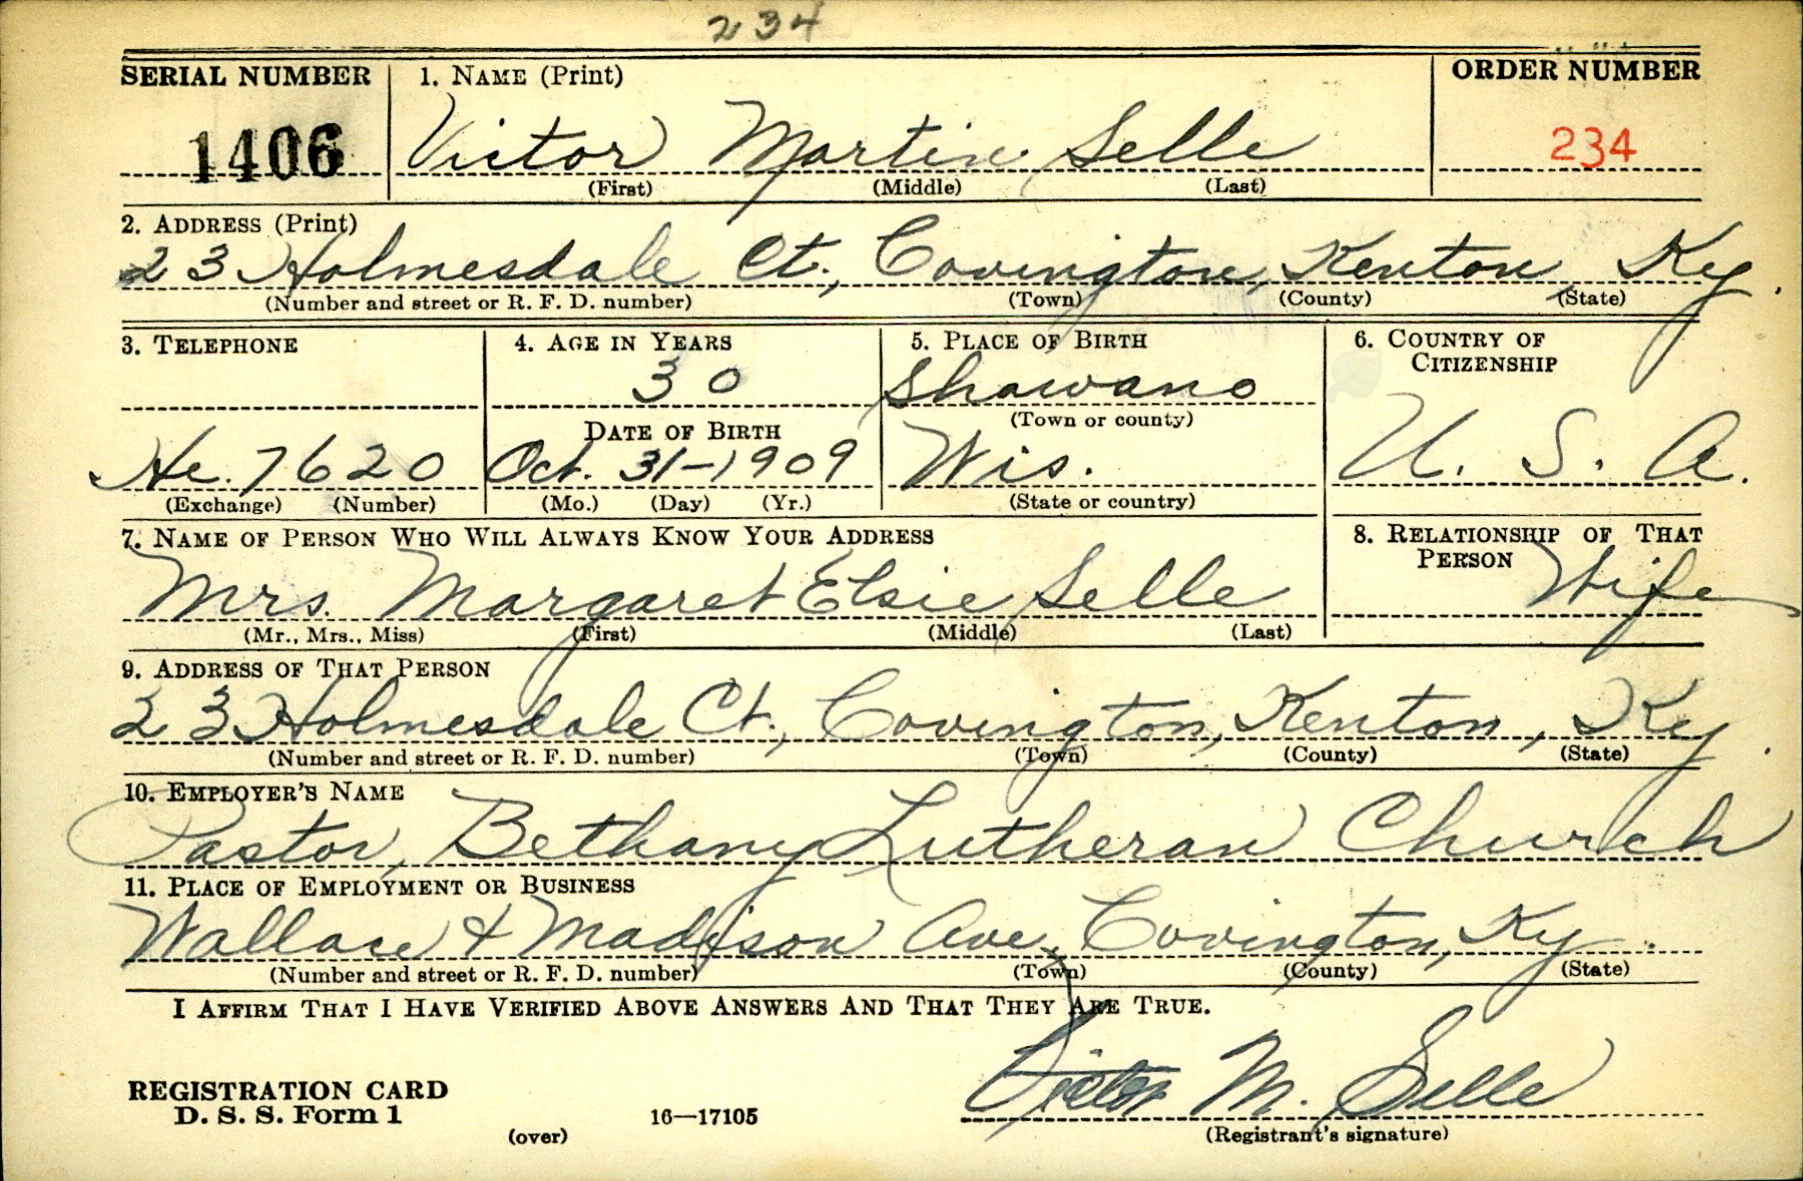 234
SERIAL NUMBER
1. NAME (Print)
ORDER NUMBER
1406
Victor Martin Selle
234
(First) (Middle) (Last)
2. ADDRESS (Print)
23 Holmesdale Ct., Covington, Kenton, Ky.
(Number and street or R. F. D. number) (Town) (County) (State)
3. TELEPHONE
4. AGE IN YEARS
5. PLACE OF BIRTH
6. COUNTRY OF
CITIZENSHIP
30
Shawano
(Town or county)
DATE OF BIRTH
He. 7620
Oct. 31-1909
Wis.
U. S. A.
(Exchange) (Number)
(Mo.) (Day) (Yr.)
(State or country)
7. NAME OF PERSON WHO WILL ALWAYS KNOW YOUR ADDRESS
8. RELATIONSHIP OF THAT
PERSON
Mrs. Margaret Elsie Selle
Wife
(Mr., Mrs., Miss) (First) (Middle) (Last)
9. ADDRESS OF THAT PERSON
23 Holmesdale Ct., Covington, Kenton, Ky.
(Number and street or R. F. D. number) (Town) (County) (State)
10. EMPLOYER'S NAME
Pastor, Bethany Lutheran Church
11. PLACE OF EMPLOYMENT OR BUSINESS
Wallace & Madison Ave, Covington, Ky.
(Number and street or R. F. D. number) (Town) (County) (State)
I AFFIRM THAT I HAVE VERIFIED ABOVE ANSWERS AND THAT THEY ARE TRUE.
Victor M. Selle
REGISTRATION CARD
D. S. S. Form 1
16—17105
(over)
(Registrant's signature)